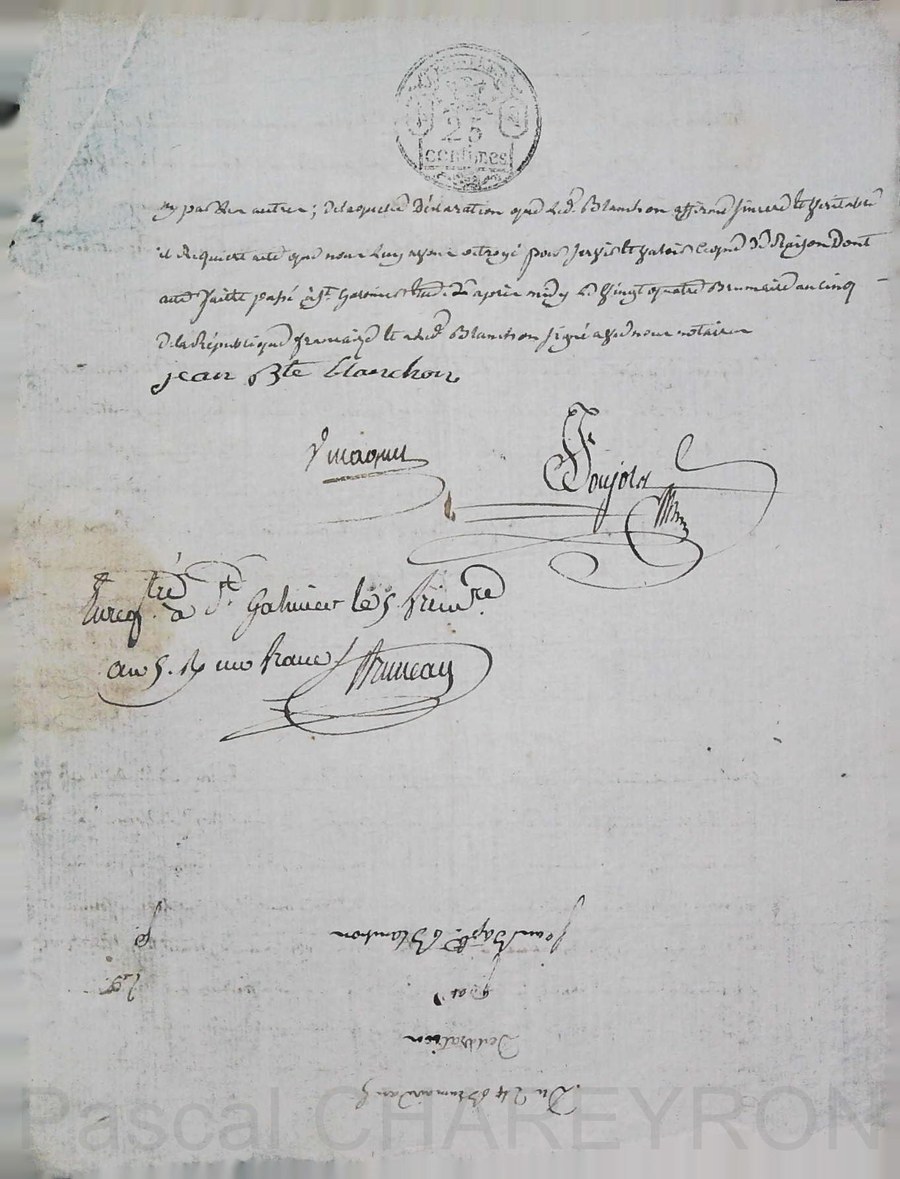 25
centimes
ny pas d'en autres; de laquelle Déclaration que led. Blanchon affirme sincere & veritable
il requiert acte que nous luy avons octroyé pour servir & valoir ce que de Raison Dont
acte faitte passé à St. Galmier après midy le vingt quatre Brumaire an cinq
de la République française & a led. Blanchon signé avec nous notaires
jean Bte blanchon
Poujols
Enregtré à St Galmier le 5. frimre
an 5. R un franc
Bruneau
Du 24 Brumaire an 5
Declaration
par
Jean Bapte. Blanchon
Pascal CHAREYRON